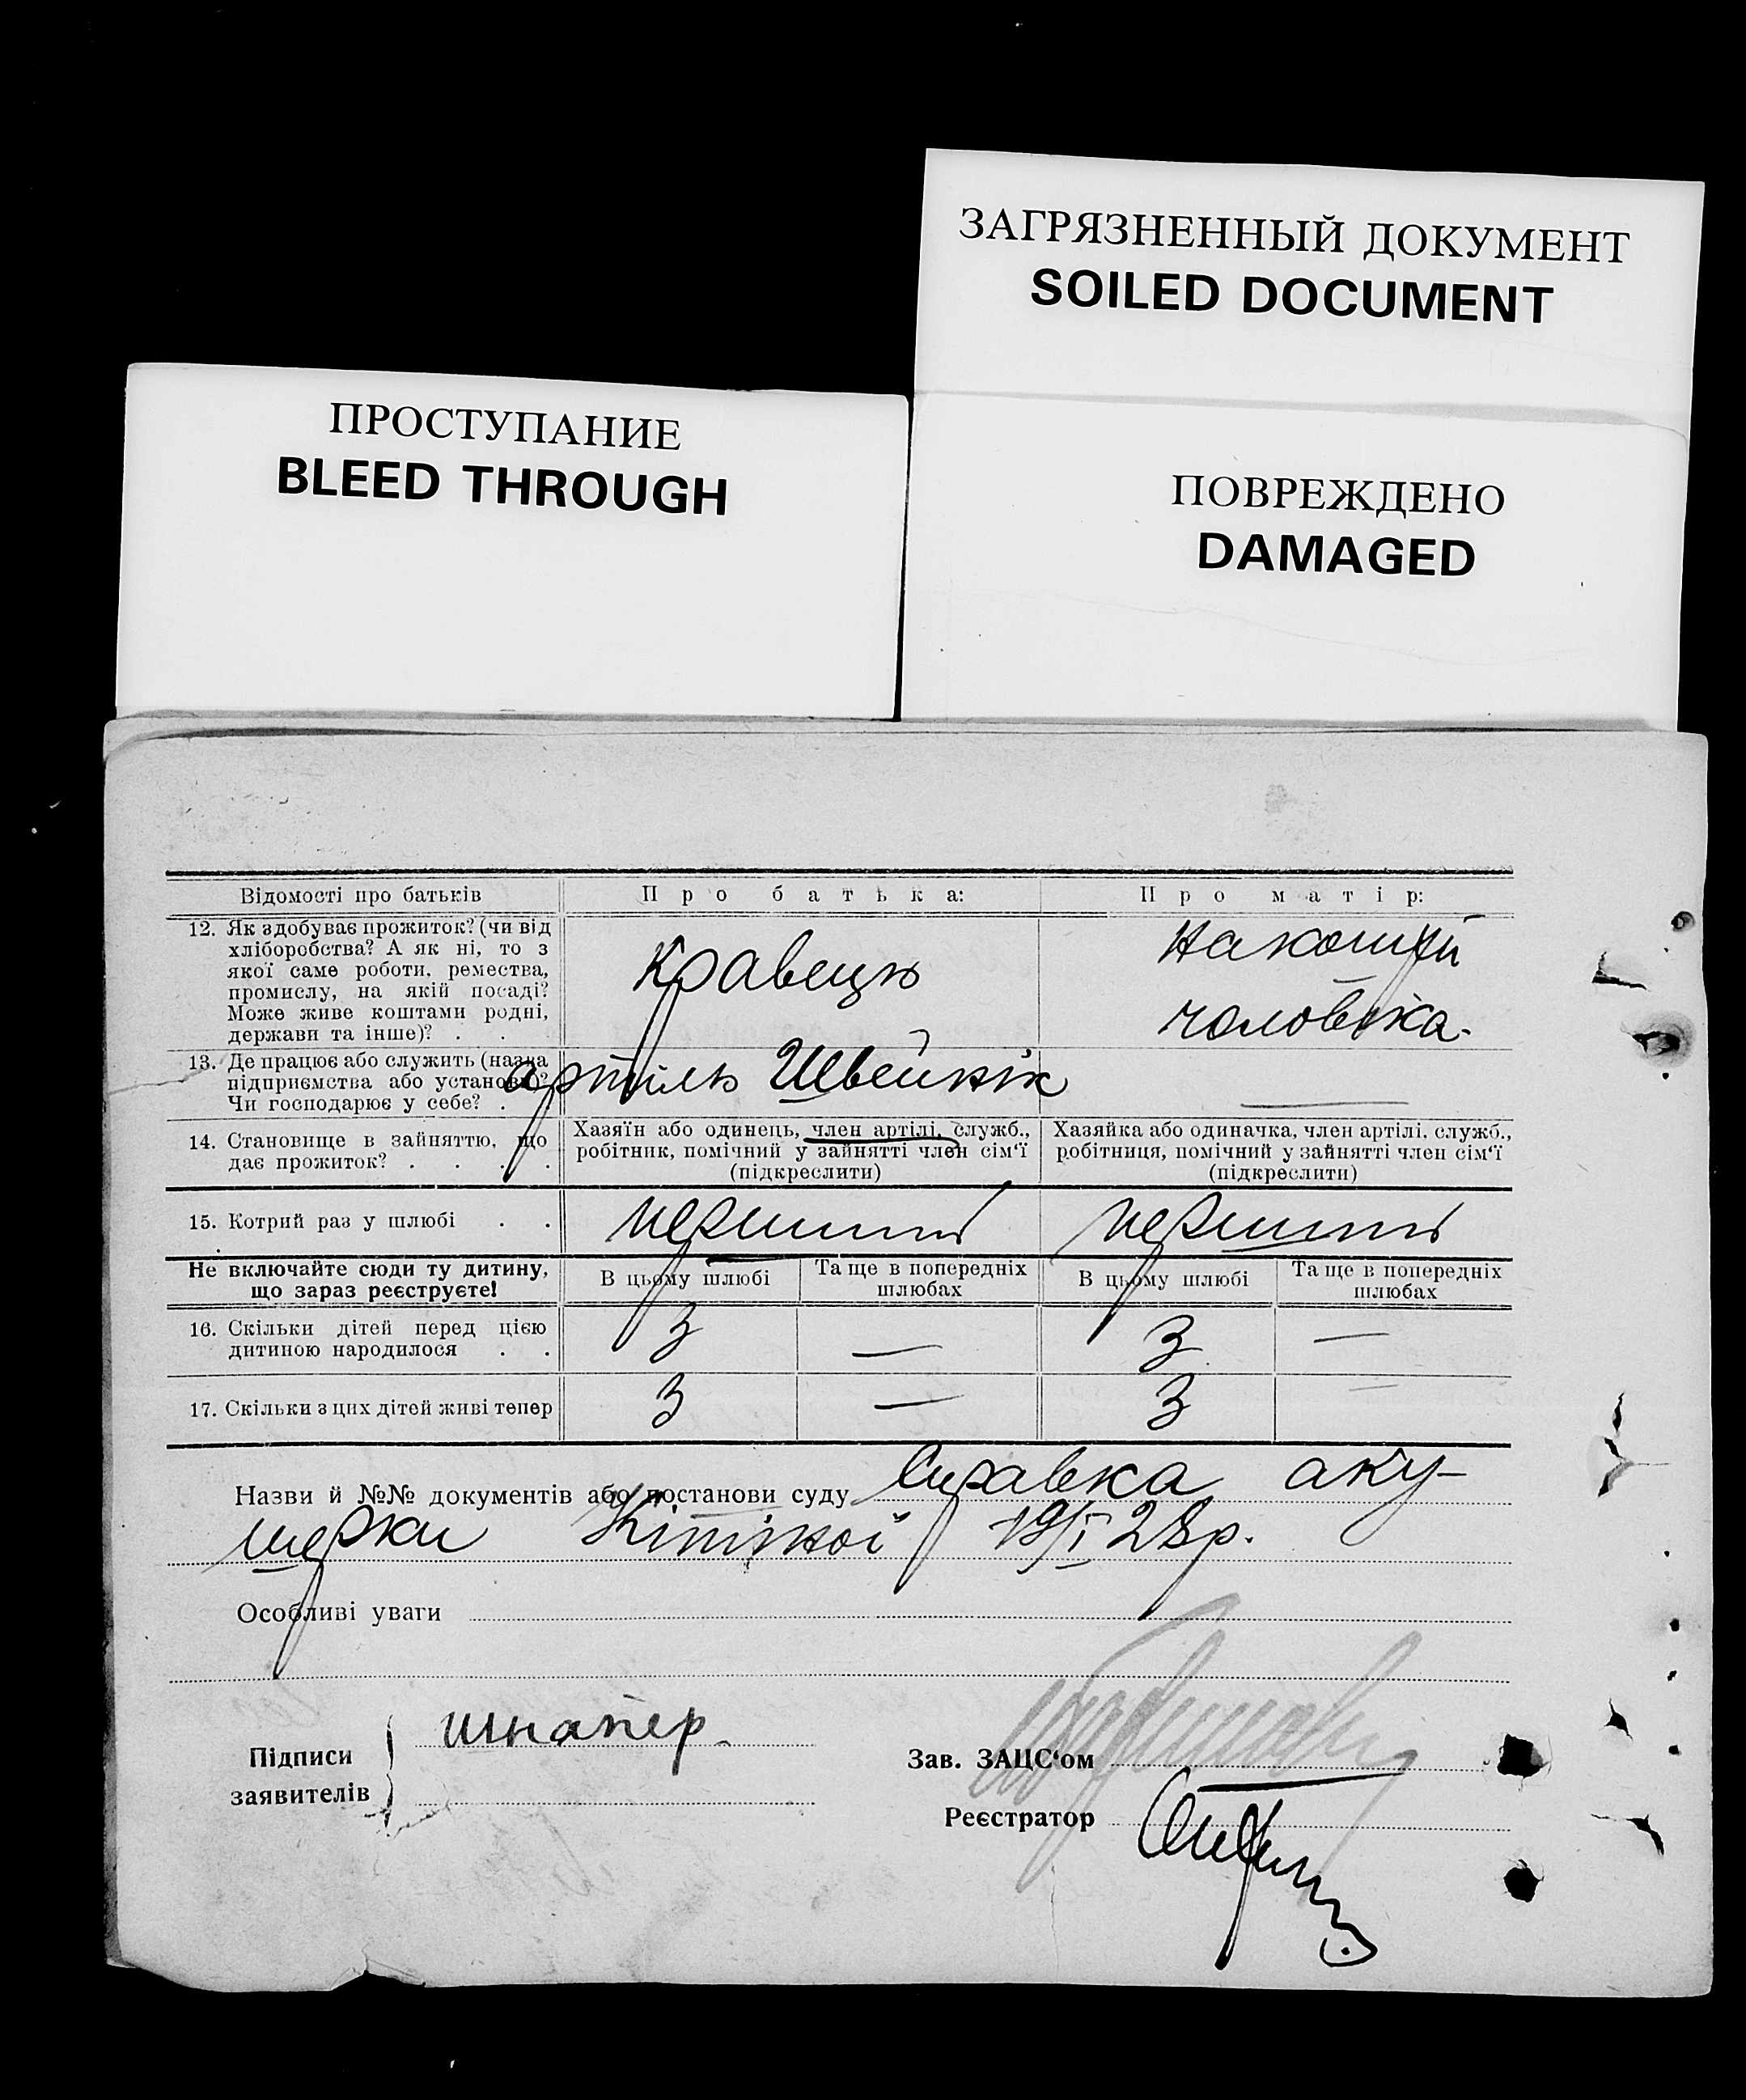 ЗАГРЯЗНЕННЫЙ ДОКУМЕНТ
SOILED DOCUMENT
ПРОСТУПАНИЕ
BLEED THROUGH
ПОВРЕЖДЕНО
DAMAGED
Відомості про батьків
Про батька:
Про матір:
12. Як здобуває прожиток? (чи від
хліборобства? А як ні, то з
якої саме роботи, ремества,
промислу, на якій посаді?
Може живе коштами родні,
держави та інше)? . .
Кравець
На кошти
чоловіка.
13. Де працює або служить (назва
підприємства або установи)?
Чи господарює у себе? .
артіль Швейнік
—
14. Становище в зайняттю, що
дає прожиток? . . . .
Хазяїн або одинець, член артілі, служб.,
робітник, помічний у зайнятті член сім'ї
(підкреслити)
Хазяйка або одиначка, член артілі, служб.,
робітниця, помічний у зайнятті член сім'ї
(підкреслити)
15. Котрий раз у шлюбі . .
перший
перший
Не включайте сюди ту дитину,
що зараз реєструєте!
В цьому шлюбі
Та ще в попередніх
шлюбах
В цьому шлюбі
Та ще в попередніх
шлюбах
16. Скільки дітей перед цією
дитиною народилося . .
3 — 3 —
17. Скільки з цих дітей живі тепер
3 — 3 —
Назви й №№ документів або постанови суду Справка аку-
шерки 19/I 28р.
Особливі уваги
Підписи
заявителів
шнапер.
Зав. ЗАЦС'ом
Реєстратор